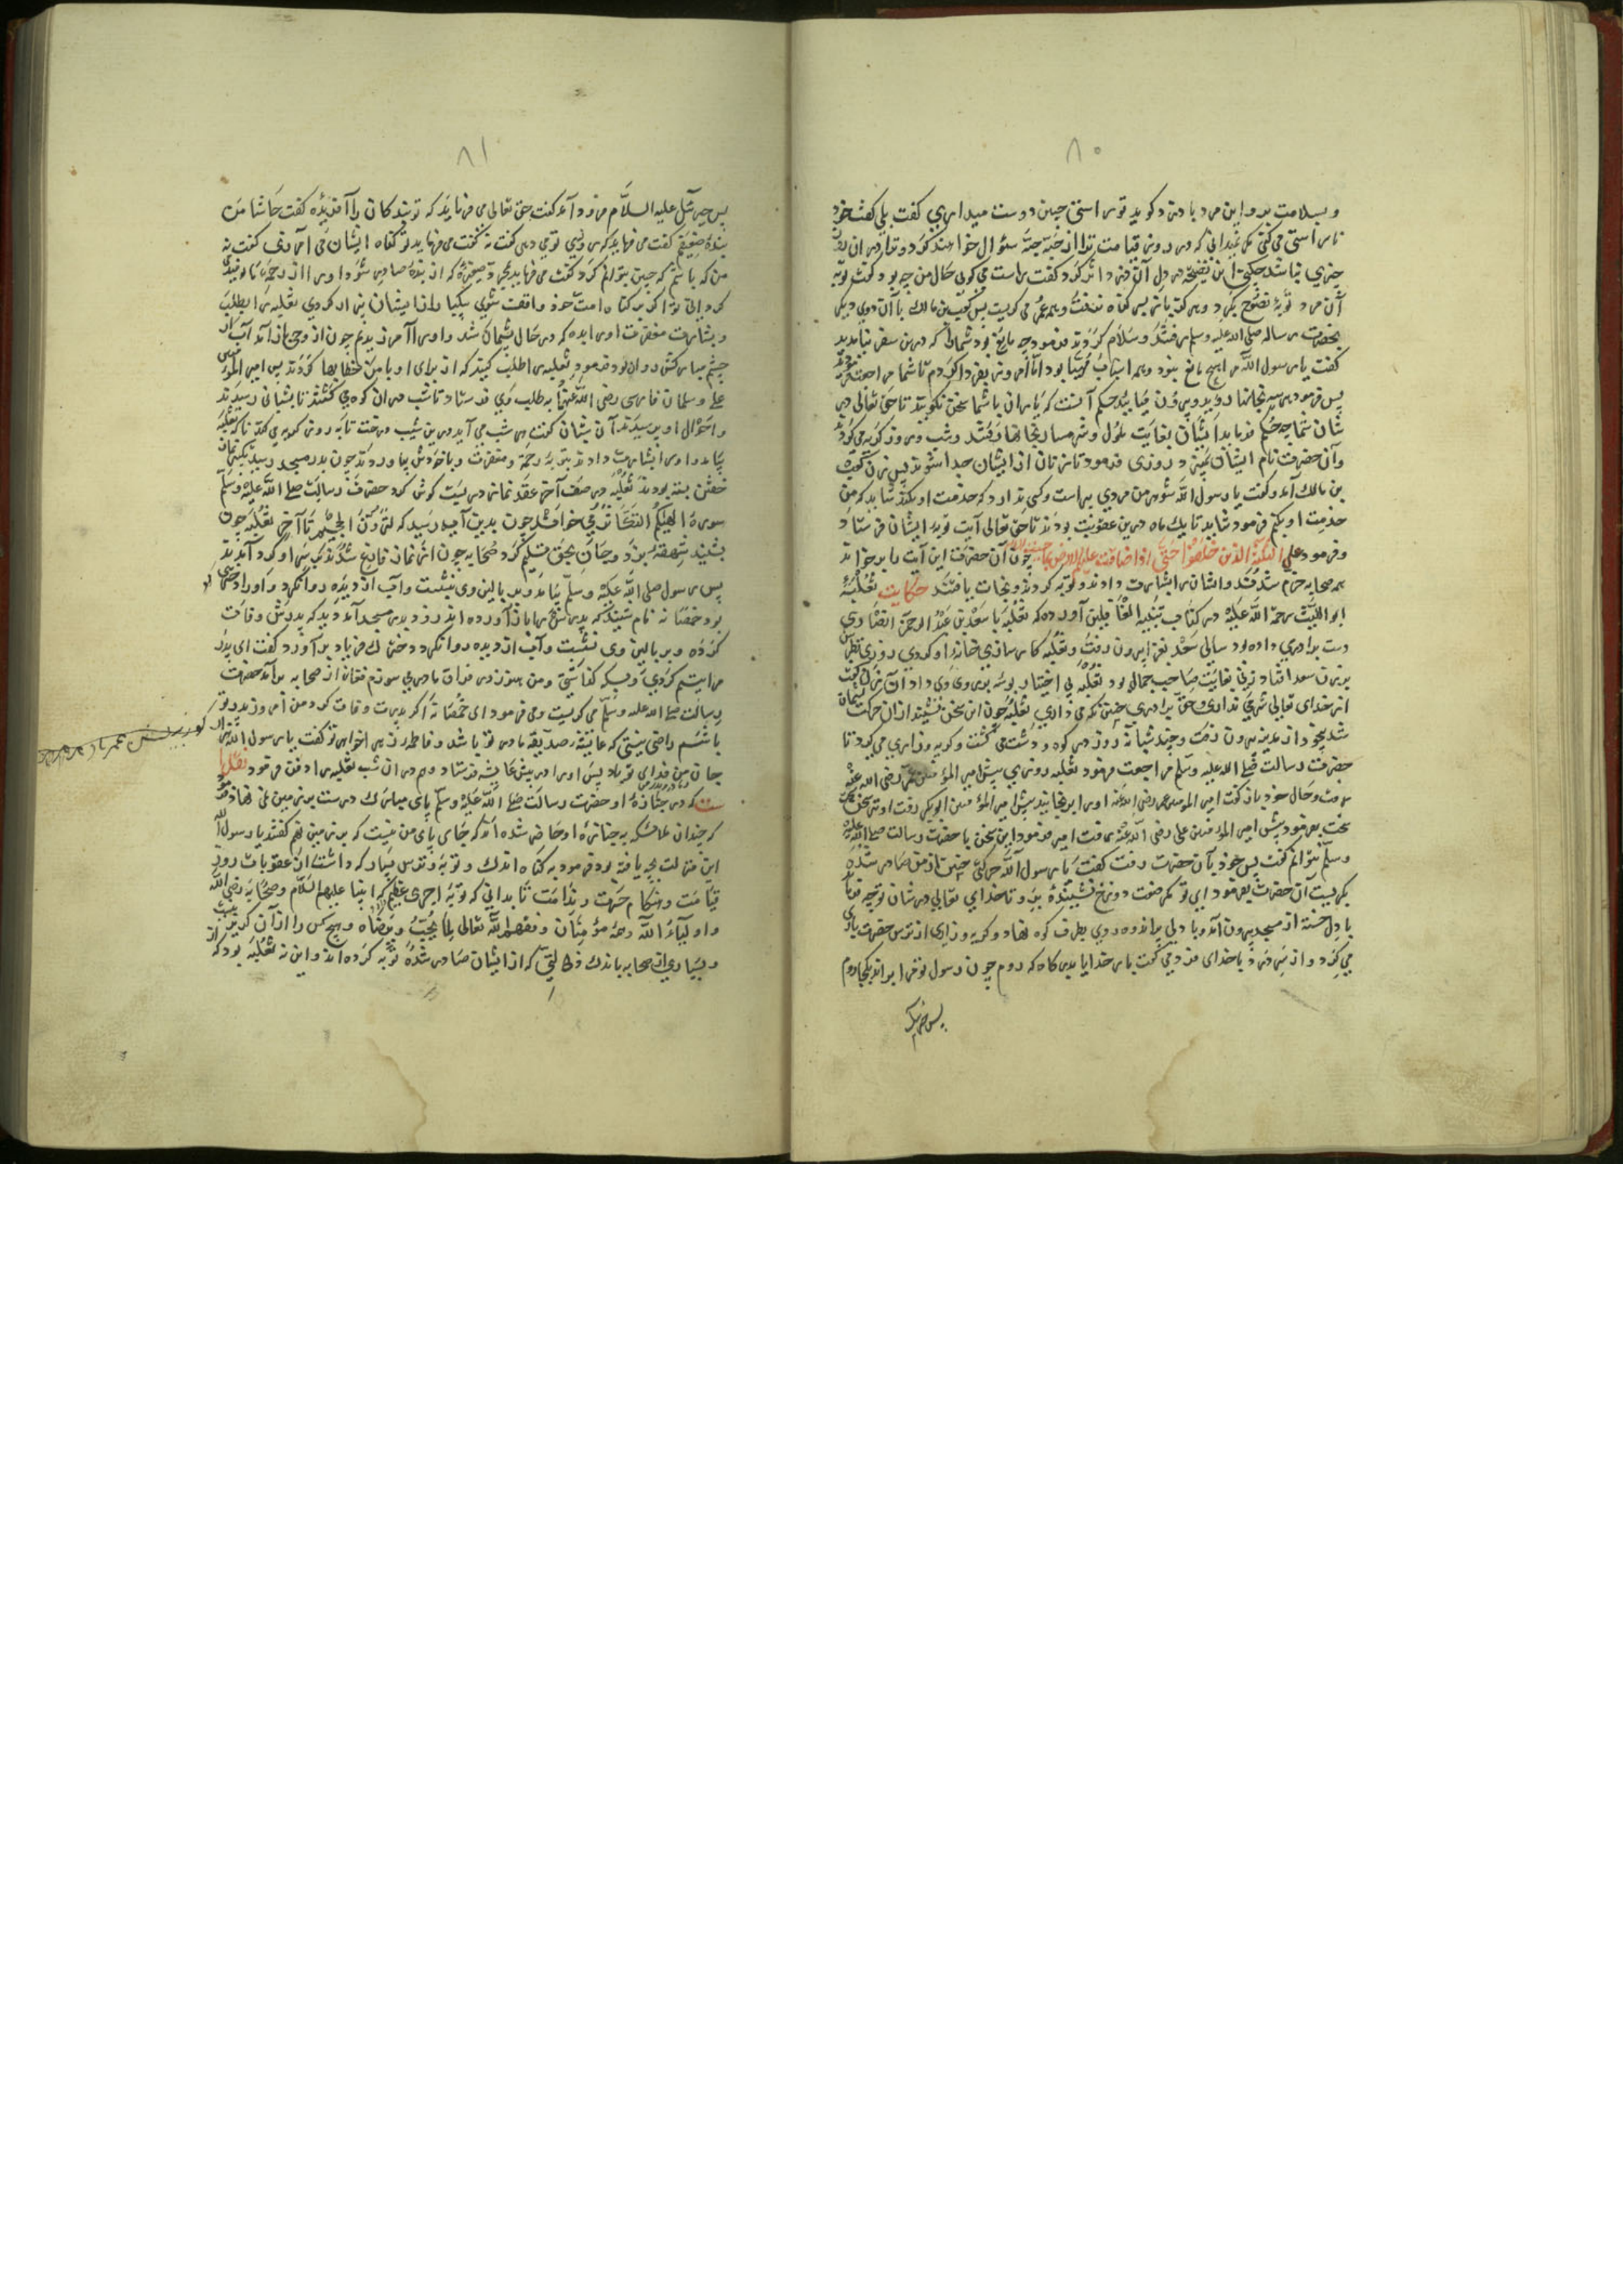 ۸۰
و بسلامت برد و این مرد با دزد کوید تو راستی جبین دوست میداری کفت بلی کفت خود
چیزی نباشد جکنی این نصیحه در دل آن دزد اثر کرد کفت راست می کوی حال من چه بود کفت توبه
آن مرد توبهٔ نصوح بکرد و هرکز باز بسر کناه نرفت و همه عمر می کریست پس کعب بن مالک با آن دوی دیکر
بحضرت رساله صلی الله علیه وسلم رفتند و سلام کردند فرمود چه مانع بود شما را که درین سفر نیامدید
کفت یا رسول الله مرا هیچ مانع نبود و همه اسباب مهیا بود اما امروز بفردا کردم تا شما مراجعت
پس فرمود در خانها روید و بیرون میایید حکم آنست که یاران با شما سخن نکویند تا حق تعالی در
شان شما چه حکم فرماید ایشان بغایت ملول و شرمسار بخانها رفتند و شب و روز کریه می کردند
و آن حضرت نام ایشان و روزی فرمود تا زنان از ایشان جدا شوند پس زن کعب
بن مالک آمد و کفت یا رسول الله شوهر من مردی پیر است و کسی ندارد که خدمت او بکند شاید که من
خدمت او بکنم فرمود شاید تا یک ماه درین عقوبت بودند تا حق تعالی آیت توبه ایشان فرستاد
و فرمود علی الثلثة الذین خلفوا حتی اذا ضاقت علیهم الارض بما چون آن حضرت این آیت را برخواند
همه صحابه خرم شدند و ایشان را بشارت دادند و توبه کردند و نجات یافتند حکایت ثعلبه
ابو اللیث رحمة الله علیه در کتاب تنبیه الغافلین آورده که ثعلبه با سعد بن عبد الرحمن انصاری
دست برادری داده بود سالی سعد بغزا بیرون رفت و ثعلبه کارسازی خانه او کردی روزی نظرش
بر زن سعد افتاد زنی بغایت صاحب جمال بود ثعلبه بی اختیار بوسه بر روی وی داد آن زن کفت
از خدای تعالی شرم نداری و حق برادری چنین نکه می داری ثعلبه چون این سخن بشنید ازان حرکت پشیمان
شد بیخود از مدینه بیرون رفت و چند شبانه روز در کوه و دشت می کشت و کریه و زاری می کرد تا
حضرت رسالت صلی الله علیه وسلم مراجعت فرمود ثعلبه روزی پیش امیر المؤمنین عمر رضی الله عنه
رفت و حال خود باز کفت امیر المومنین عمر رضی الله عنه او را برنجانید پیش امیر المؤمنین ابو بکر رفت او نیز سخن
سخت بفرمود پیش امیر المؤمنین علی رضی الله عنه رفت امیر فرمود این سخن با حضرت رسالت صلی الله علیه
وسلم نتوانم کفت پس خود بآن حضرت رفت کفت یا رسول الله حرکتی چنین از من صادر شده
بکریست آن حضرت بفرمود ای تو مکر صفت دوزخ نشنیده برو تا خدای تعالی در شان تو چه فرماید
با دل خسته از مسجد بیرون آمد و با دلی پر اندوه روی بطرف کوه نهاد و کریه و زاری از ترس حضرت باری
می کرد و از سر درد با خدای خود می کفت بار خدایا بدین کاه که روم چون رسول تو مرا براند بکجا روم
پس جبرئیل
۸۱
پس جبرئیل علیه السلام فرود آمد کفت حق تعالی می فرماید که تو بندکان را آفریده کفت حاشا من
بندهٔ ضعیفم کفت می فرماید که روزی تو می دهی کفت نه کفت می فرماید تو کناه ایشان می آمرزی کفت نه
من که باشم که چنین توانم کرد کفت می فرماید بمجرد صغیره که از بنده صادر شود او را از رحمت ما نومید
کردانی تو اکر بر کناه امت خود واقف شوی بیکبار از ایشان بیزار کردی ثعلبه را بطلب
و بشارت مغفرت او را بده که در حال پشیمان شد و او را آمرزیدیم چون از وحی باز آمد آب از
چشم مبارکش روان بود فرمود ثعلبه را طلب کنید که از برای او با من خطابها کردند پس امیر المؤمنین
علی و سلمان فارسی رضی الله عنهما به طلب وی فرستاد تا شب دران کوه می کشتند تا بشبانی رسیدند
و احوال او پرسیدند آن شبان کفت هر شب می آید درین شیب درخت تا به روز کریه می کند تا که ثعلبه
بیامد و او را بشارت دادند بتوبه و رحمة و مغفرت و با خود ش بیاوردند چون بدر مسجد رسید بیکی نماز
خفتن بسته بودند ثعلبه در صف آخر عقد نماز در بست کوش کرد حضرت رسالت صلی الله علیه وسلم
سورهٔ الهیکم التکاثر می خواند چون بدین آیه رسید که لترون الجحیم تا آخر ثعلبه چون
بشنید شهقه بزد و جان بحق تسلیم کرد صحابه چون از نماز فارغ شدند بر سر او کرد آمدند
پس رسول صلی الله علیه وسلم بیامد و بر بالین وی نشست و آب از دیده روان کرد و او را دختری
بود خمصانه نام شنید که پدرش را باز آورده اند زود بدر مسجد آمد دید که پدرش وفات
کرده و بر بالین وی نشست و آب از دیده روان کرد دخترک فریاد بر آورد کفت ای پدر
مرا یتیم کردی و من هنوز در فراق مادر می سوزم فغان از صحابه برآمد حضرت
رسالت صلی الله علیه وسلم می کریست و می فرمود ای خمصانه اکر پدرت وفات کرد من امروز پدر تو
باشم راضی نیستی که عایشه صدیقه مادر تو باشد و فاطمه زهرا خواهر تو کفت یا رسول الله
جان من فدای تو باد پس او را در پیش عایشه فرستاد و هم دران شب ثعلبه را دفن فرمود نقل
ست که در جنازهٔ او حضرت رسالت صلی الله علیه وسلم پای مبارک درست بر زمین نمی نهاد
که چندان ملائکه به جنازه او حاضر شده اند که جای پای من نیست که بر زمین نهم کفتند یا رسول الله
این منزلت بچه یافته بود فرمود به کناه اندک و توبه و ترس بسیار که داشت از عقوبات روز
قیامت و هنکام حسرت و ندامت تا بدانی که توبه اجری عظیم که انبیا علیهم السلام و صحابه رضی الله
و اولیاء الله و همه مؤمنان وفقهم الله تعالی لما یحب و یرضاه و هیچ کس را ازان کریز نیست
و بسیاری از صحابه باندک زلتی که از ایشان صادر شده توبه کرده اند و این نه ثعلبه بود که